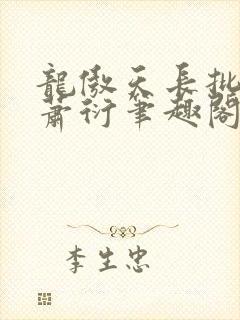 龍傲天長批
蕭衍筆趣閣
李生忠